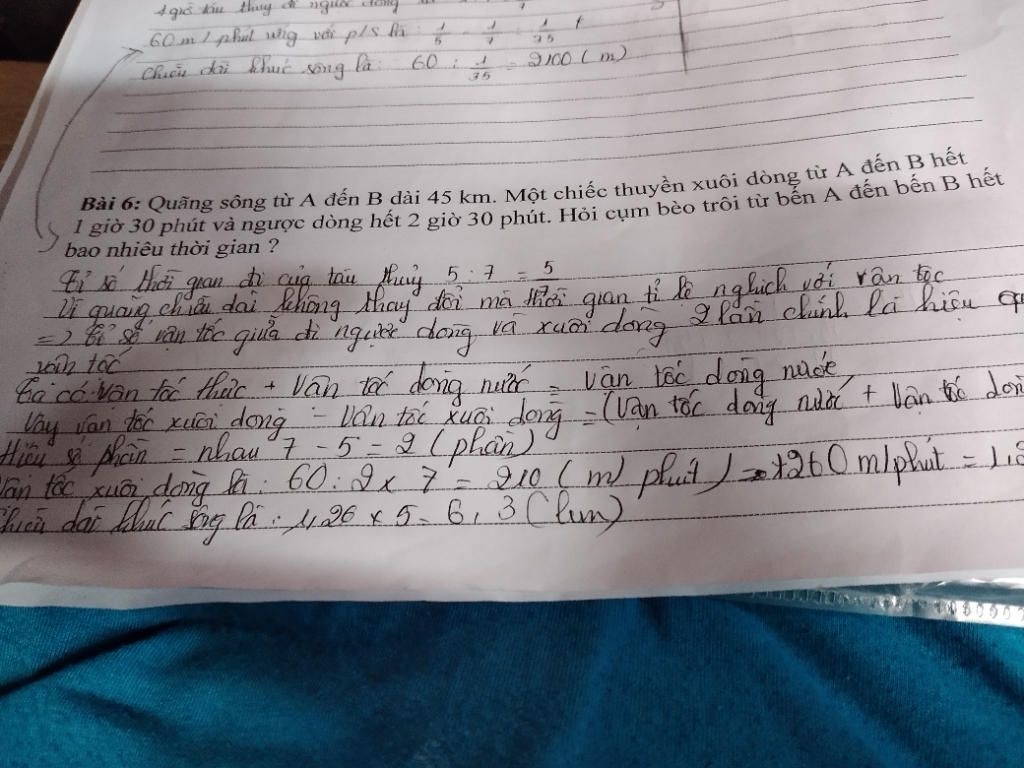 1 giờ tàu thủy đi ngược dòng
60 m/phút ứng với p/s là: 1/5 - 1/7 = 1/35
Chiều dài khúc sông là: 60 : 1/35 = 2100 (m)
Bài 6: Quãng sông từ A đến B dài 45 km. Một chiếc thuyền xuôi dòng từ A đến B hết
1 giờ 30 phút và ngược dòng hết 2 giờ 30 phút. Hỏi cụm bèo trôi từ bến A đến bến B hết
bao nhiêu thời gian ?
Tỉ số thời gian đi của tàu thủy 5 : 7 = 5
Vì quãng chiều dài không thay đổi mà thời gian tỉ lệ nghịch với vận tộc
=> tỉ số vận tốc giữa đi ngược dòng và xuôi dòng 2 lần chính là hiệu
vận tốc
Ta có: Vận tốc thực + Vận tốc dòng nước = vận tốc dòng nước
Vậy vận tốc xuôi dòng - Vận tốc xuôi dòng = (Vận tốc dòng nước + Vận tốc
Hiệu số phần = nhau 7 - 5 = 2 (phần)
Vận tốc xuôi dòng là: 60 : 2 x 7 = 210 (m/phút) = 1260 m/phút = 1,2
Chiều dài khúc sông là: 1,26 x 5 = 6,3 (km)